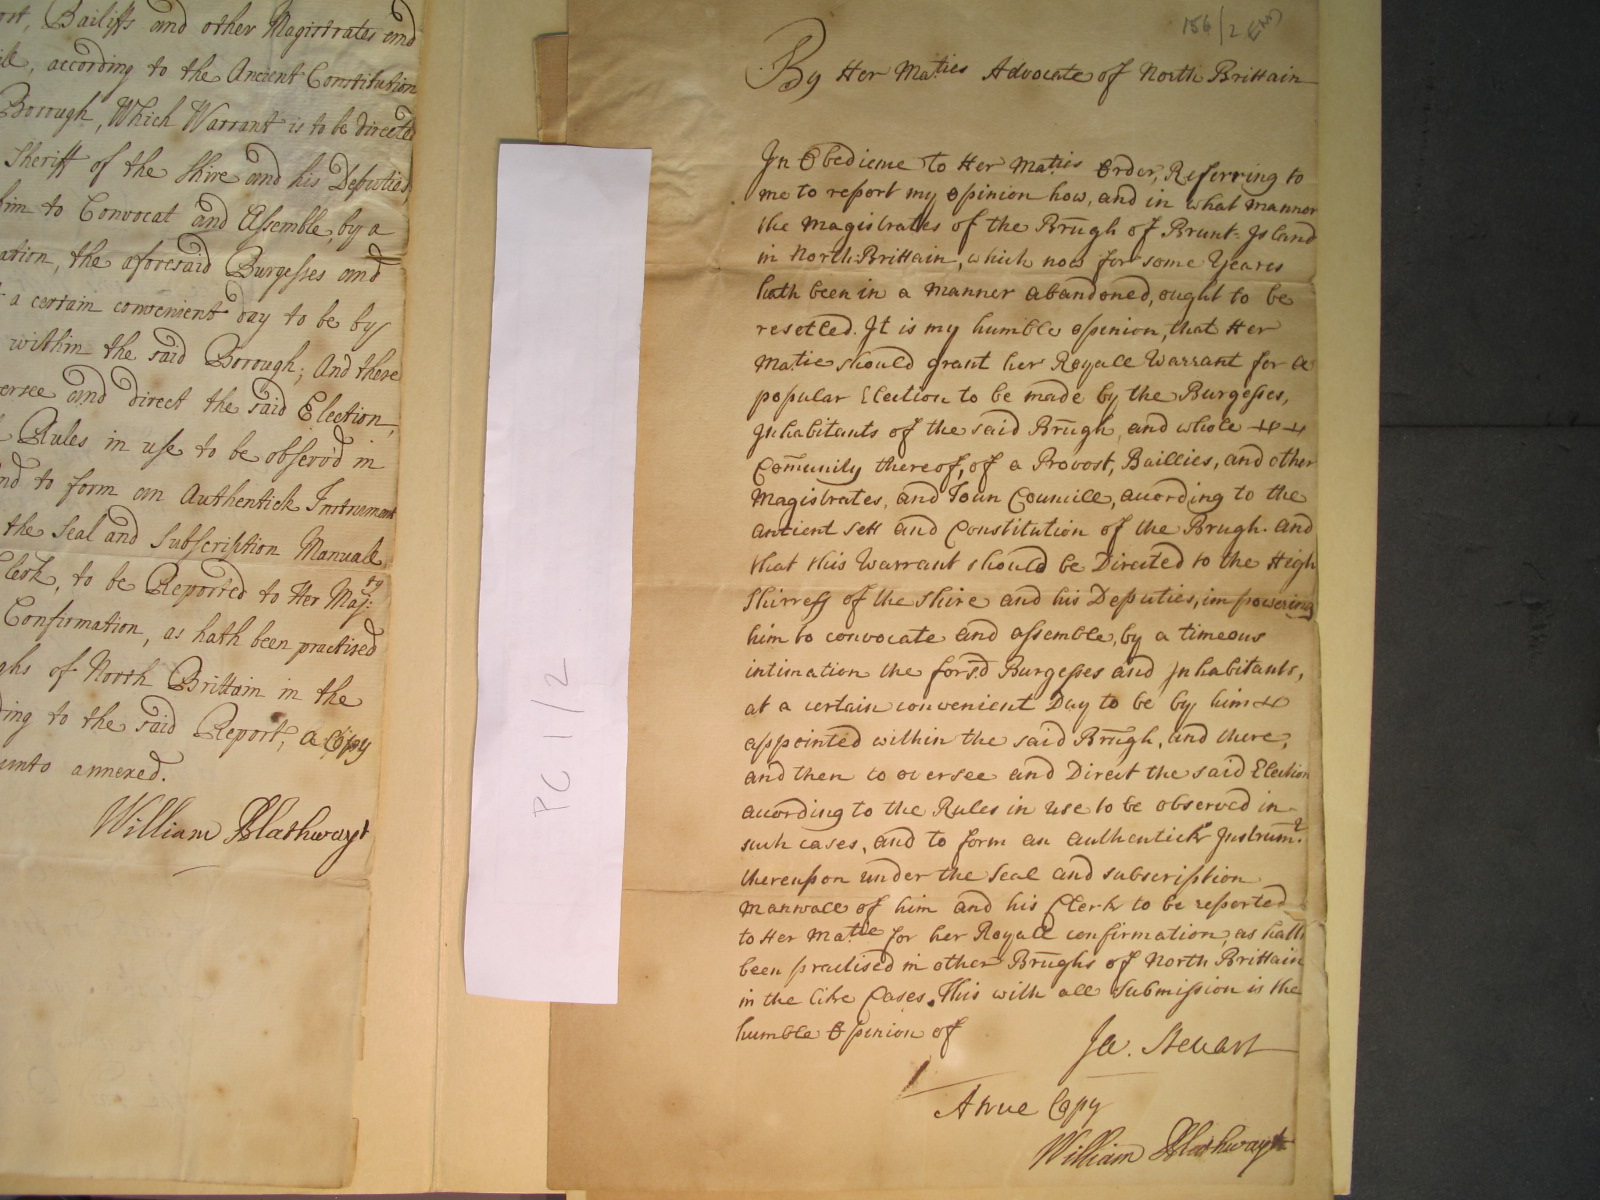 ost, Bailiffs and other Magistrates and
according to the Ancient Constitution
Borough, Which Warrant is to be directed
Sheriff of the Shire and his Deputies,
him to Convocat and Assemble, by a
ation, the aforesaid Burgesses and
a certain convenient day to be by
within the said Borough; And there
ersee and direct the said Election,
Rules in use to be observ'd in
nd to form an Authentick Instrument
the Seal and Subscription Manuall
Clerk, to be Reported to Her Maj:ty
Confirmation, as hath been practised
ghs of North Brittain in the
ding to the said Report, a Copy
unto annexed.
William Blathwayt
PC 1/2
156/2
By Her Ma:ties Advocate of North Brittain
In Obedience to Her Ma:ties Order, Referring to
me to report my opinion how, and in what manner
the Magistrates of the Brugh of Brunt-Island
in North Brittain, which now for some Yeares
hath been in a manner abandoned, ought to be
resetled. It is my humble opinion, that Her
Ma:tie should grant her Royall Warrant for a
popular Election to be made by the Burgesses,
Inhabitants of the said Brugh, and whole
Comunity thereof, of a Provost, Baillies, and other
Magistrates, and Toun Councill, acording to the
antient sett and Constitution of the Brugh. and
that this Warrant should be Directed to the High
Shirreff of the Shire and his Deputies, impowering
him to convocate and assemble, by a timeous
intimation the fors:d Burgesses and Inhabitants,
at a certain convenient Day to be by him
appointed within the said Brugh, and there,
and then to oversee and Direct the said Election
acording to the Rules in use to be observed in
such cases, and to form an authentick Instrum:t
thereupon under the Seal and subscription
Manuall of him and his Clerk to be reported
to Her Ma:tie for her Royall confirmation, as hath
been practised in other Brughs of North Brittain
in the like Cases. This with all submission is the
humble Opinion of
Ja. Steuart
A true Copy
William Blathwayt